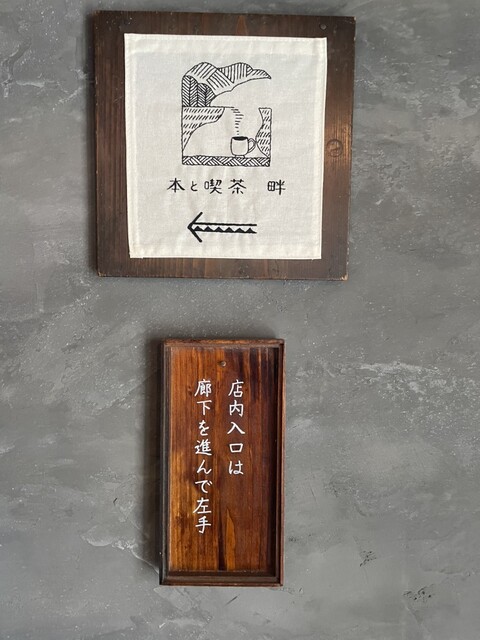 本と喫茶　畔
店内入口は
廊下を進んで左手